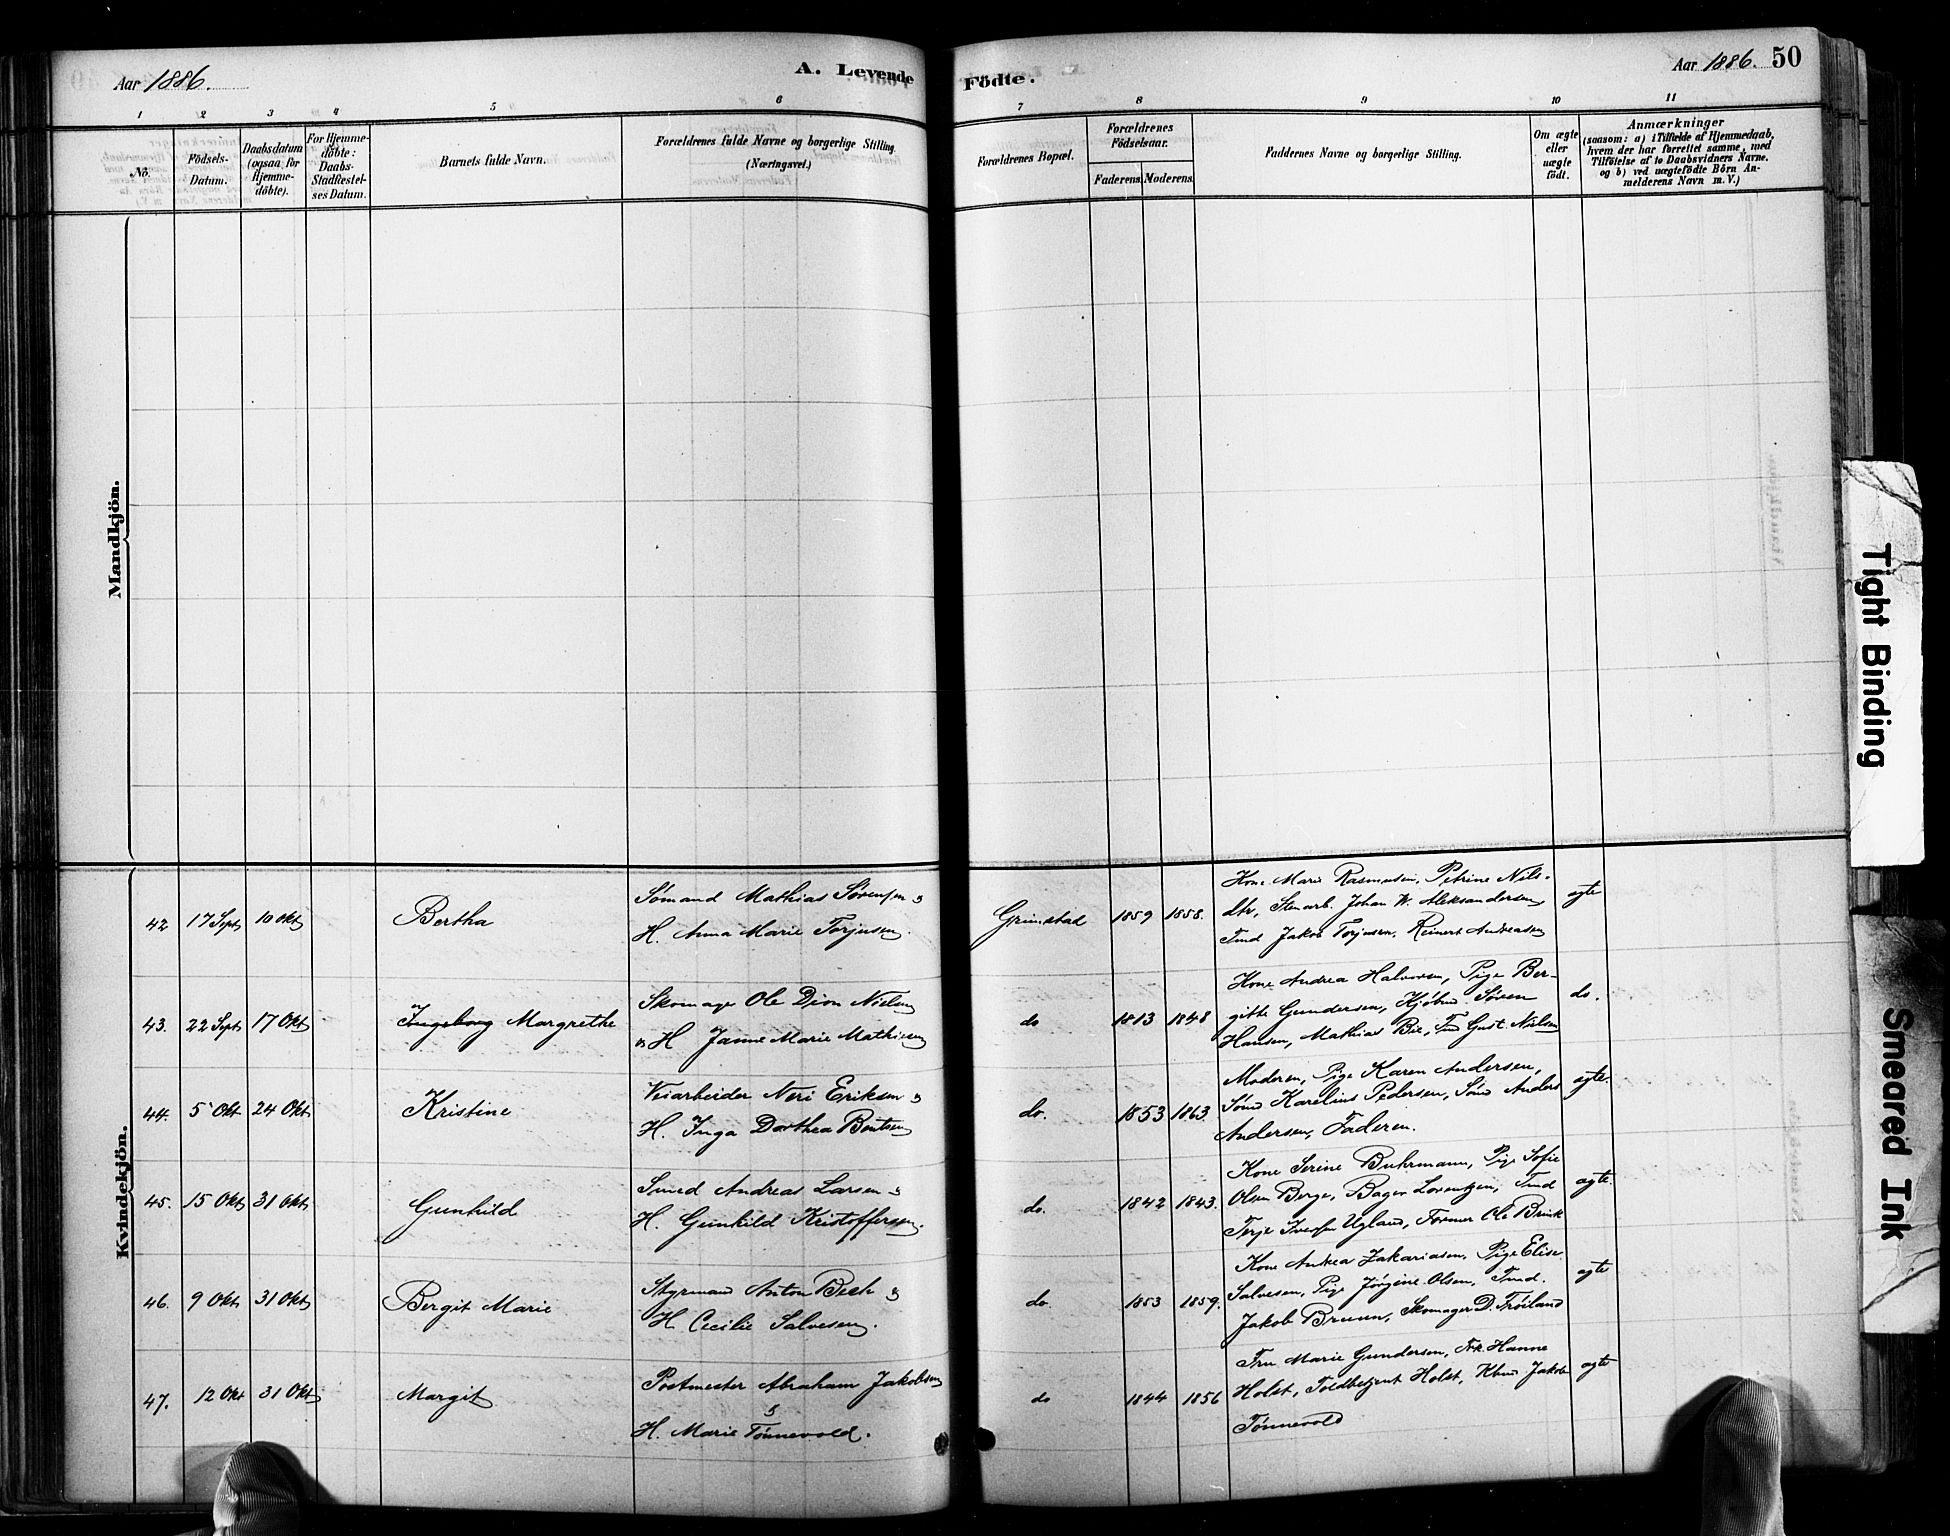 Aar 1886.
A. Levende Födte.
Aar 1886. 50
1 2 3 4 5 6 7 8 9 10 11
No.
Födsels-Datum.
Daabsdatum (ogsaa for Hjemme-döbte).
For Hjemme-döbte: Daabs-Stadfæstel-ses Datum.
Barnets fulde Navn.
Forældrenes fulde Navne og borgerlige Stilling
(Næringsvei.)
Forældrenes Bopæl.
Forældrenes Födselsaar.
Faderens. Moderens.
Faddernes Navne og borgerlige Stilling.
Om ægte eller uægte født.
Anmærkninger
(saasom: a) i Tilfælde af Hjemmedaab,
hvem der har forrettet samme, med
Tilföielse af to Daabsvidners Navne.
og b) ved uægtefödte Börn An-
melderens Navn m. V.)
Mandkjön.
Kvindekjön.
42 17 Sept 10 Okt Bertha
Sømand Mathias Sørensen &
H. Anna Marie Torjusen.
Grimstad 1859 1858.
Kone Marie Rasmusen, Petrine Nils-
dtr, Stenarb. Johan W. Aleksandersen,
Tmd Jakob Torjusen, Reinert Andreasen
ægte
43. 22 Sept 17 Okt Ingeborg Margrethe
Skomager Ole Dion Nielsen
& H Janne Marie Mathisen
do 1813 1848
Kone Andrea Halvorsen, Pige Ber-
gitte Gundersen, Kjøbmd Søren
Hansen, Mathias Bie, Tmd Gust. Nielsen
do.
44. 5 Okt 24 Okt Kristine
Veiarbeider Neri Eriksen &
H. Inga Dorthea Bentsen
do. 1853 1863
Moderen, Pige Karen Andersen,
Sømd Karelius Pedersen, Sømd Anders
Andersen, Faderen.
ægte.
45. 15 Okt 31 Okt Gunhild
Smed Andreas Larsen &
H. Gunhild Kristoffersen.
do. 1842 1843.
Kone Serine Buhrmann, Pige Sofie
Olsen Berge, Bager Lorentzen, Tmd
Terje Iversen Ugland, Former Ole Brink
ægte.
46. 9 Okt 31 Okt Bergit Marie
Styrmand Anton Bech &
H Cecilie Salvesen.
do. 1853 1859.
Kone Andrea Zakariasen, Pige Elise
Salvesen, Pige Jørgine Olsen, Tmd.
Jakob Bruun, Skomager D. Frøiland
ægte
47. 12 Okt 31 Okt Margit
Postmester Abraham Jakobsen
&
H. Marie Tønnevold.
do 1844 1856
Fru Marie Gundersen, Frk Hanne
Holst, Toldbetjent Holst, Kbmd Jakob
Tønnevold
ægte
Tight Binding
Smeared Ink